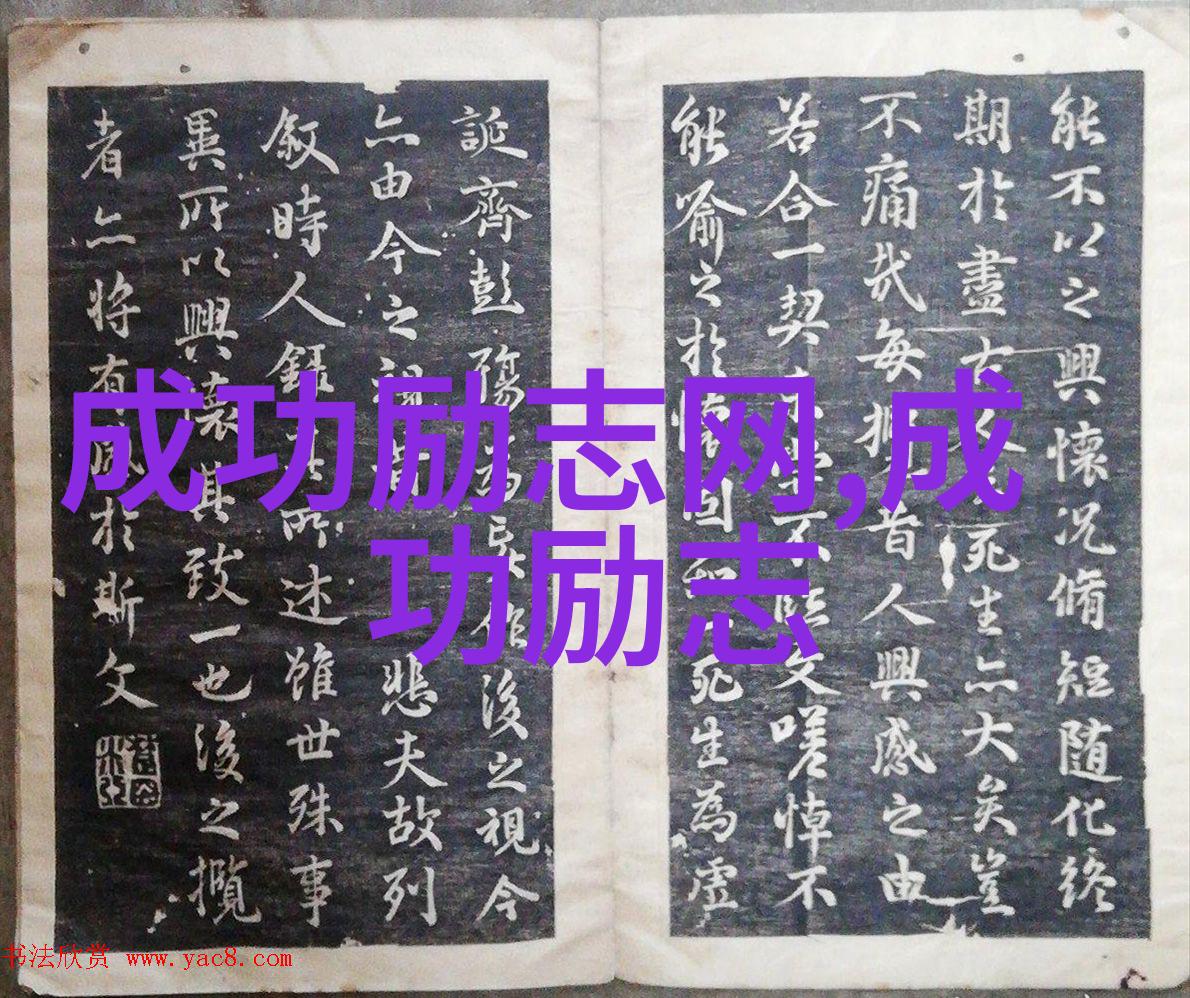 能不以之興懷況脩短随化終
期於盡古人死生亦大矣豈
不痛哉每攬昔人興感之由
若合一契未嘗不臨文嗟悼不
能喻之於懷固知死生為虛
誕齊彭殤為妄作後之視今
亦由今之視昔悲夫故列
敘時人錄其所述雖世殊事
異所以興懷其致一也後之攬
者亦将有感於斯文
成功励志网,成
功励志
书法欣赏 www.yac8.com